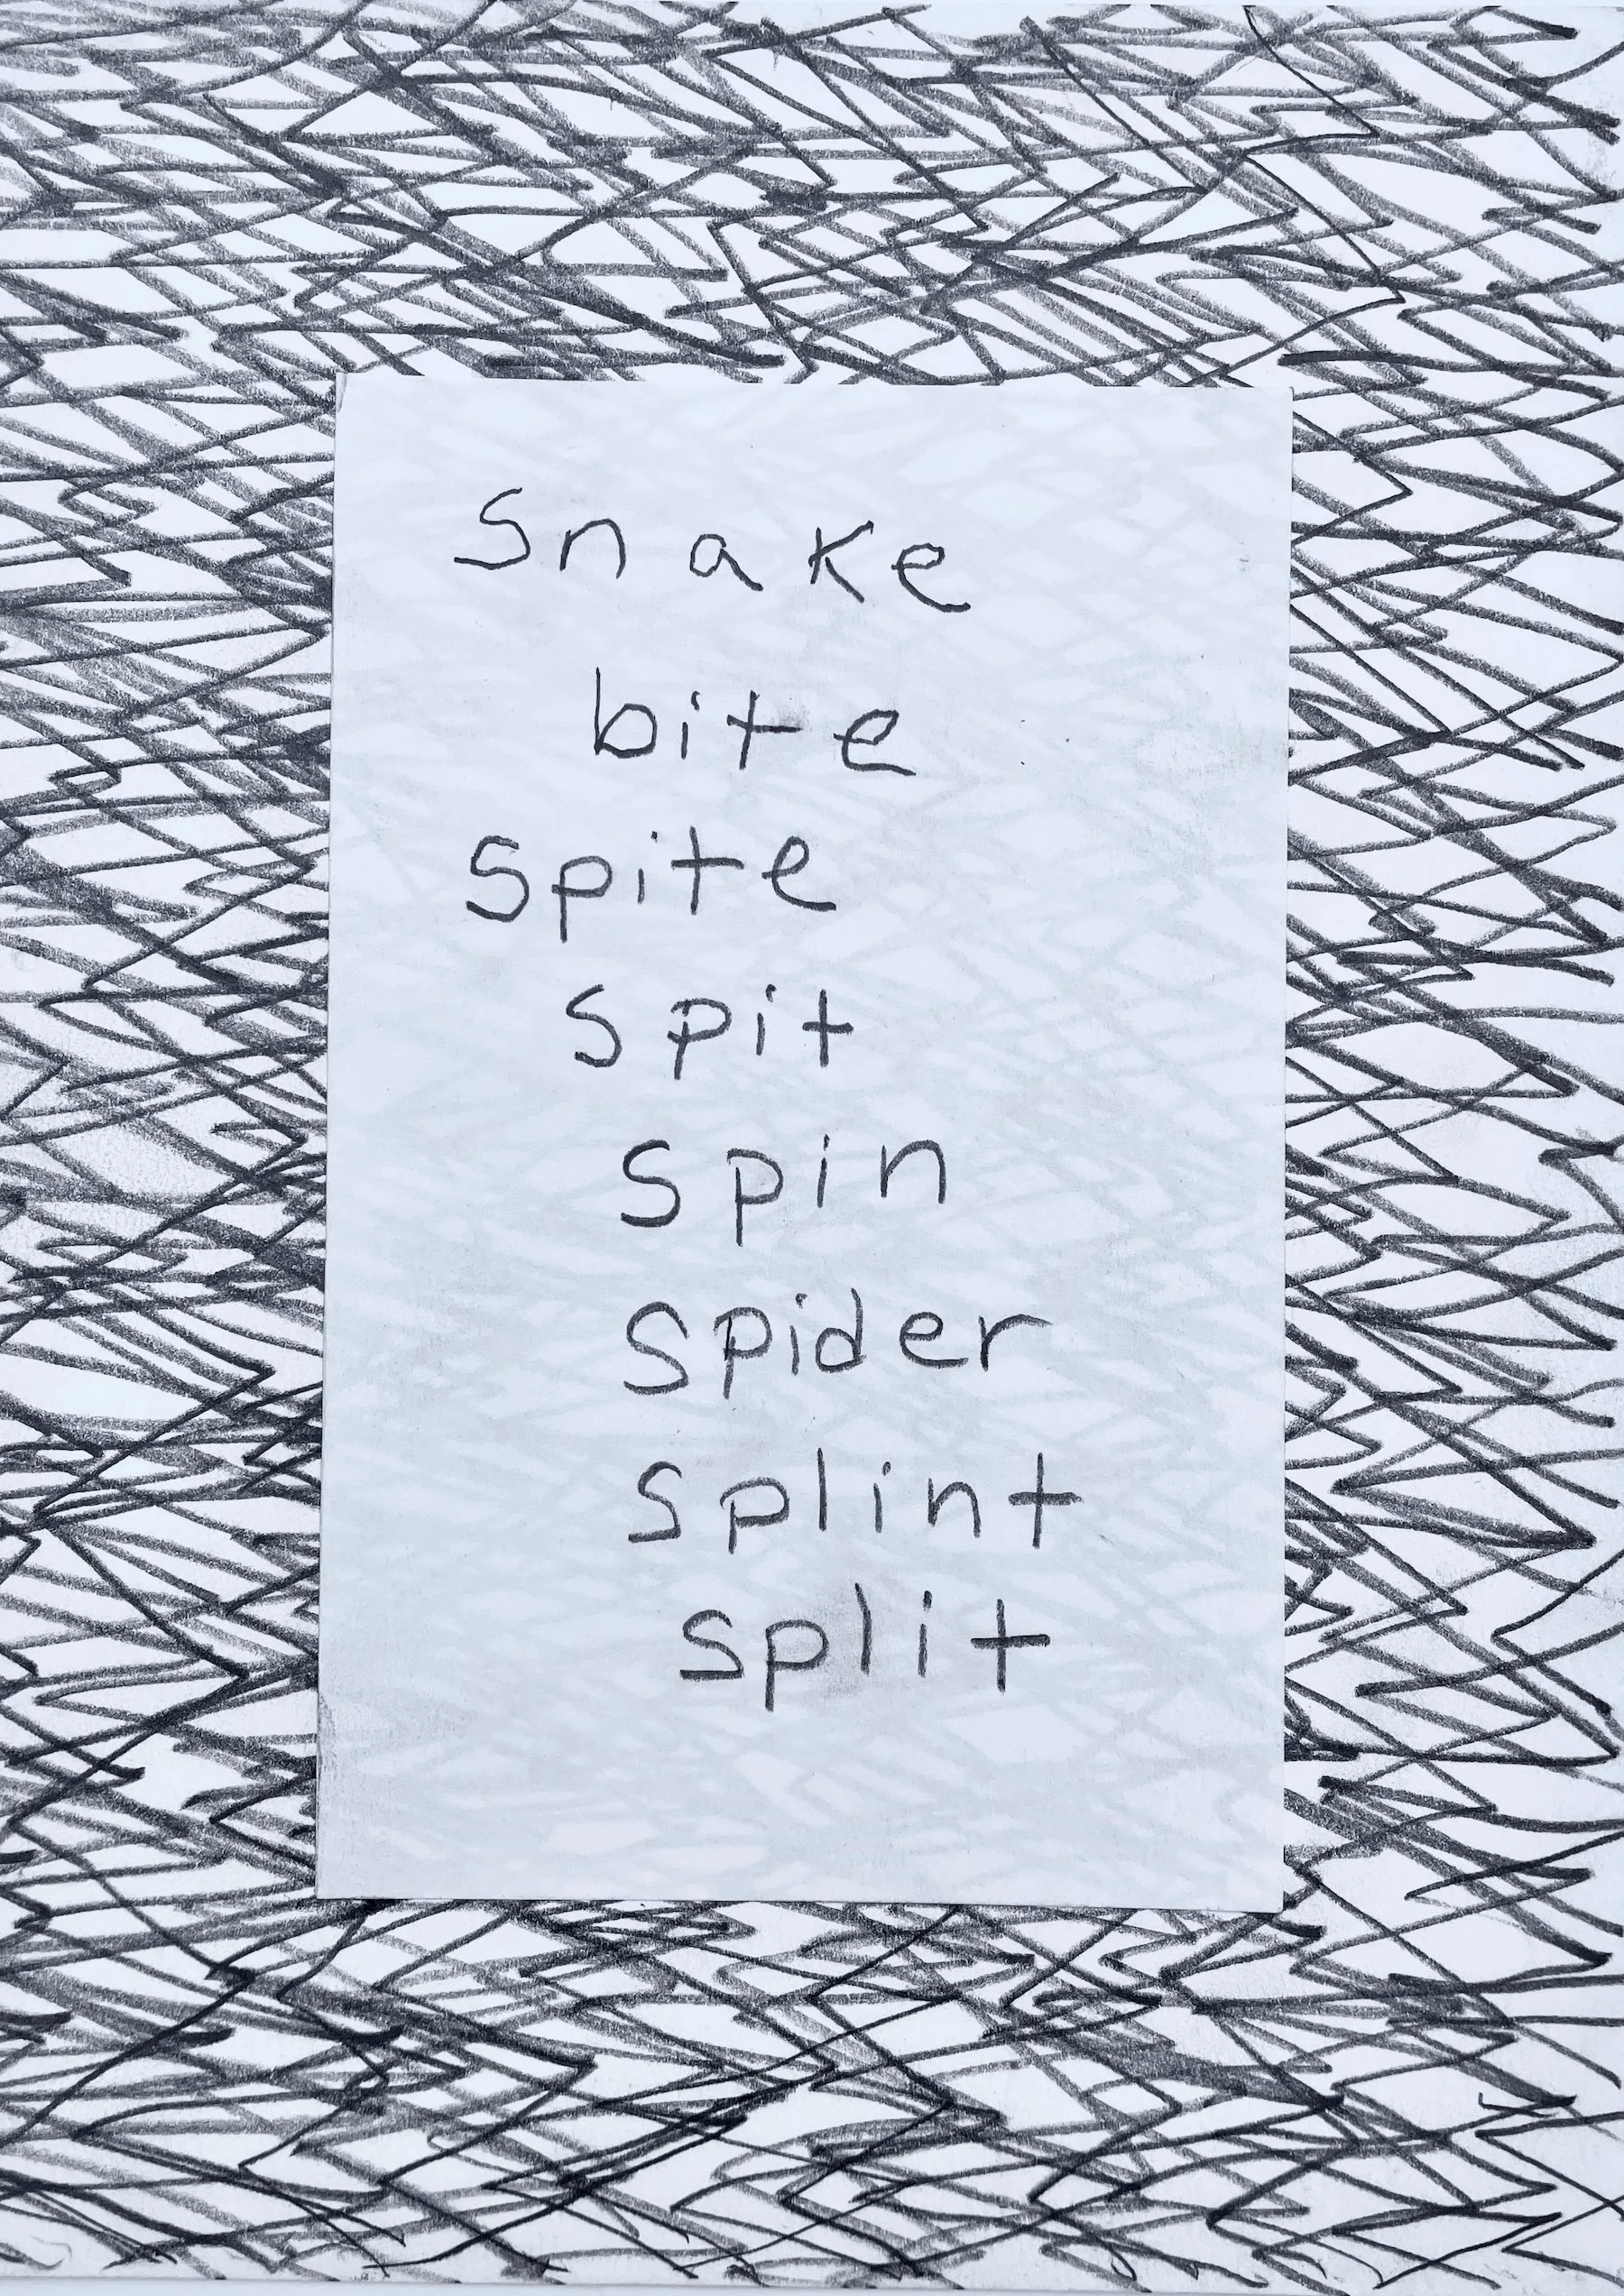 snake
bite
spite
spit
spin
spider
splint
split